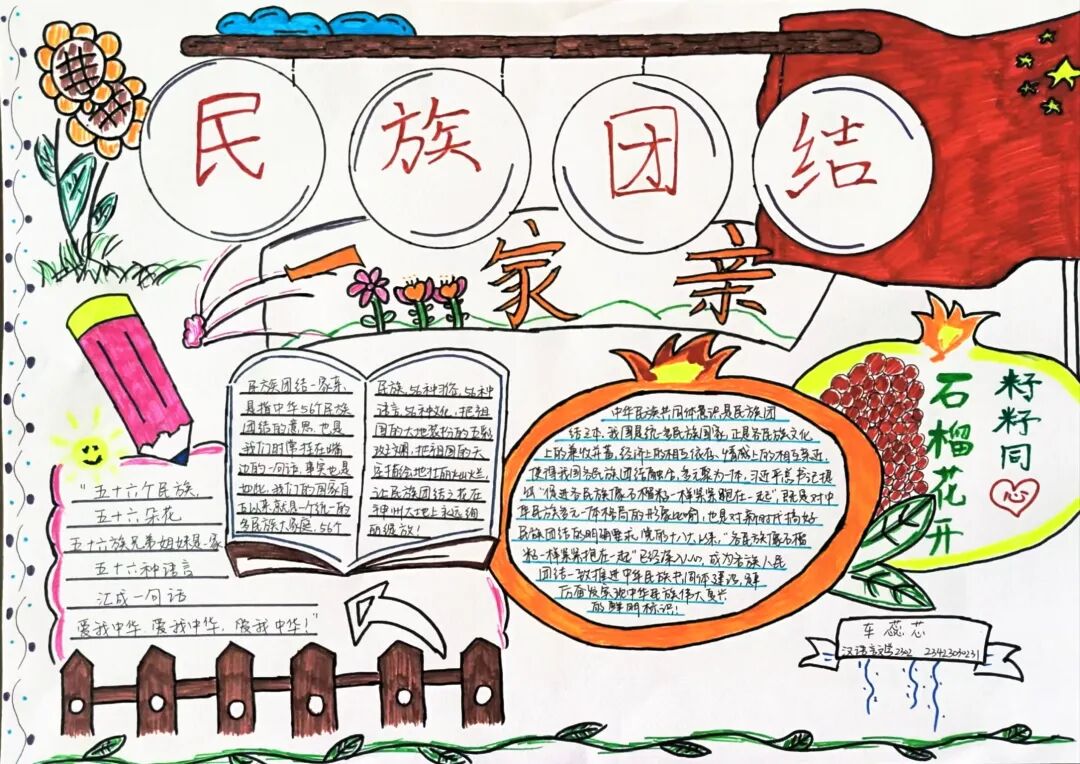 民族团结
一家亲
石榴花开
籽籽同心
民族团结一家亲，
是指中华56个民族
团结的意思，也是
我们时常挂在嘴
边的一句话，事实也是
如此，我们的国家自
古以来就是一个统一的
多民族大家庭，56个
民族，56种服饰，56种
语言，56种文化，把祖
国的大地装扮的五彩
斑斓，把祖国的天
空描绘地灯火灿烂，
让民族团结之花在
神州大地上永远绚
丽绽放！
中华民族共同体意识是民族团
结之本，我国是统一多民族国家，正是各民族文化
上的兼收并蓄、经济上的相互依存、情感上的相互亲近，
使得我国各民族团结融合，多元聚为一体，习近平总书记提
出"促进各民族像石榴籽一样紧紧抱在一起"，既是对中
华民族多元一体格局的形象比喻，也是对新时代搞好
民族团结的明确要求，党的十八大以来，"各族像石榴
籽一样紧紧抱在一起"已经深入人心，成为各族人民
团结一致推进中华民族共同体建设，
实现中华民族伟大复兴
的鲜明标识！
"五十六个民族，
五十六朵花
五十六族兄弟姐妹是一家
五十六种语言
汇成一句话
爱我中华，爱我中华，爱我中华！"
车蕊芯
汉语言文学2302 23423030231